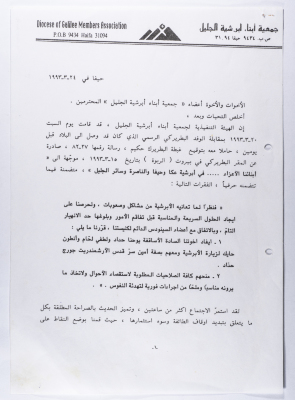 Diocese of Galilee Members Association
P.O.B 9434 Haifa 31094
جمعية أبناء أبرشية الجليل
ص.ب ٩٤٣٤ حيفا ٣١٠٩٤
حيفا في ١٩٩٣.٣.٢٤
الأخوات والأخوة أعضاء « جمعية أبناء أبرشية الجليل » المحترمين .
أخلص التحيات وبعد ،
إن الهيئة التنفيذية لجمعية أبناء أبرشية الجليل ، قد قامت يوم السبت
١٩٩٣.٣.٢٠ بمقابلة الوفد البطريركي الرسمي الذي كان قد وصل الى البلاد قبل
يومين ، حاملا معه بتوقيع غبطة البطريرك حكيم ، رسالة رقمها ٨٢.٢٧ ، صادرة
عن المقر البطريركي في بيروت ( الربوة ) بتاريخ ١٩٩٣.٣.١٥ ، موجّهة الى «
أبنائنا الأعزاء ..... في أبرشية عكا وحيفا والناصرة وسائر الجليل » ، متضمنة فيما
تتضمنه حرفياً ، الفقرات التالية :
« فنظراً لما تعانيه الأبرشية من مشاكل وصعوبات ، وتحرصنا على
ايجاد الحلول السريعة والمناسبة قبل تفاقم الأمور وبلوغها حد الانهيار
التام ، وبالاتفاق مع أعضاء السينودس الدائم لكنيستنا ، قررنا ما يلي :
١. ايفاد اخوتنا السادة الأساقفة يوحنا حداد ولطفي لحّام وأنطون
حايك لزيارة الأبرشية ومعهم بصفة أمين سرّ قدس الأرشمندريت جورج
حداد .
٢. منحهم كافة الصلاحيات المطلوبة لاستقصاء الأحوال واتخاذ ما
يرونه مناسباً وملحّاً من اجراءات فورية لتهدئة النفوس » .
لقد استمرّ الاجتماع اكثر من ساعتين ، وتميز الحديث بالصراحة المطلقة بكل
ما يتعلق بتبديد أوقاف الطائفة وسوء استثمارها ، حيث قمنا بوضع النقاط على